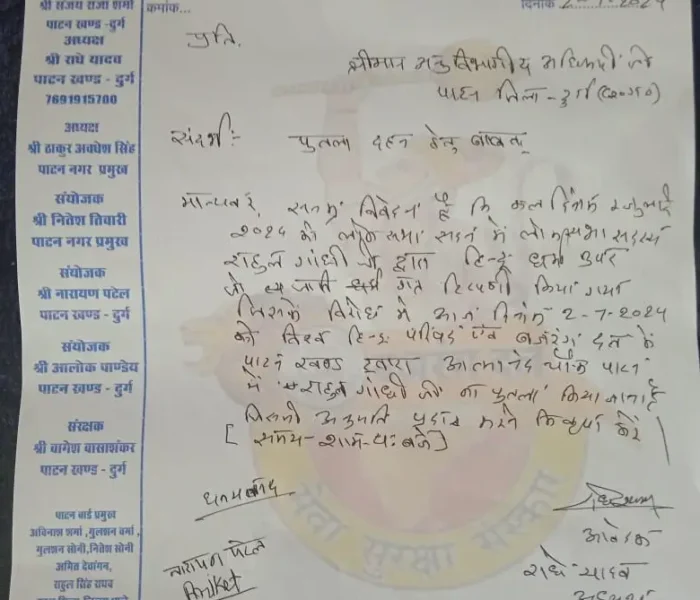 श्री संजय राजा शर्मा
पाटन खण्ड -दुर्ग
अध्यक्ष
श्री राधे यादव
पाटन खण्ड - दुर्ग
7691915700
अध्यक्ष
श्री ठाकुर अवधेश सिंह
पाटन नगर प्रमुख
संयोजक
श्री नितेश तिवारी
पाटन नगर प्रमुख
संयोजक
श्री नारायण पटेल
पाटन खण्ड - दुर्ग
संयोजक
श्री आलोक पाण्डेय
पाटन खण्ड - दुर्ग
संरक्षक
श्री वागेश वासाशंकर
पाटन खण्ड - दुर्ग
पाटन वार्ड प्रमुख
अविनाश शर्मा ,गुलशन वर्मा ,
गुलशन सोनी,नितेश सोनी
अमित देवांगन,
राहुल सिंह राघव
क्रमांक...
दिनांक 2-7-2024
प्रति,
श्रीमान अनुविभागीय अधिकारी जी
पाटन जिला - दुर्ग (छ०ग०)
संदर्भ:- पुतला दहन हेतु बाबत्
मान्यवर, सनम्र निवेदन है कि कल दिनांक 1 जुलाई
2024 को लोकसभा सदन में लोकसभा सदस्य
राहुल गांधी जी द्वारा हिन्दू धर्म उपर
जो टिप्पणी किया गया
जिसके विरोध में आज दिनांक 2-7-2024
को विश्व हिन्दू परिषद एवं बजरंग दल के
पाटन खण्ड द्वारा आत्मानंद चौक पाटन
में राहुल गांधी जी का पुतला किया जाना है
जिसकी अनुमति प्रदान करने कि कृपा करें
[समय-शाम-4:बजे]
धन्यवाद
नारायण पटेल
Aniket
आवेदक
राधे यादव
अध्यक्ष
सेवा सुरक्षा संस्कार